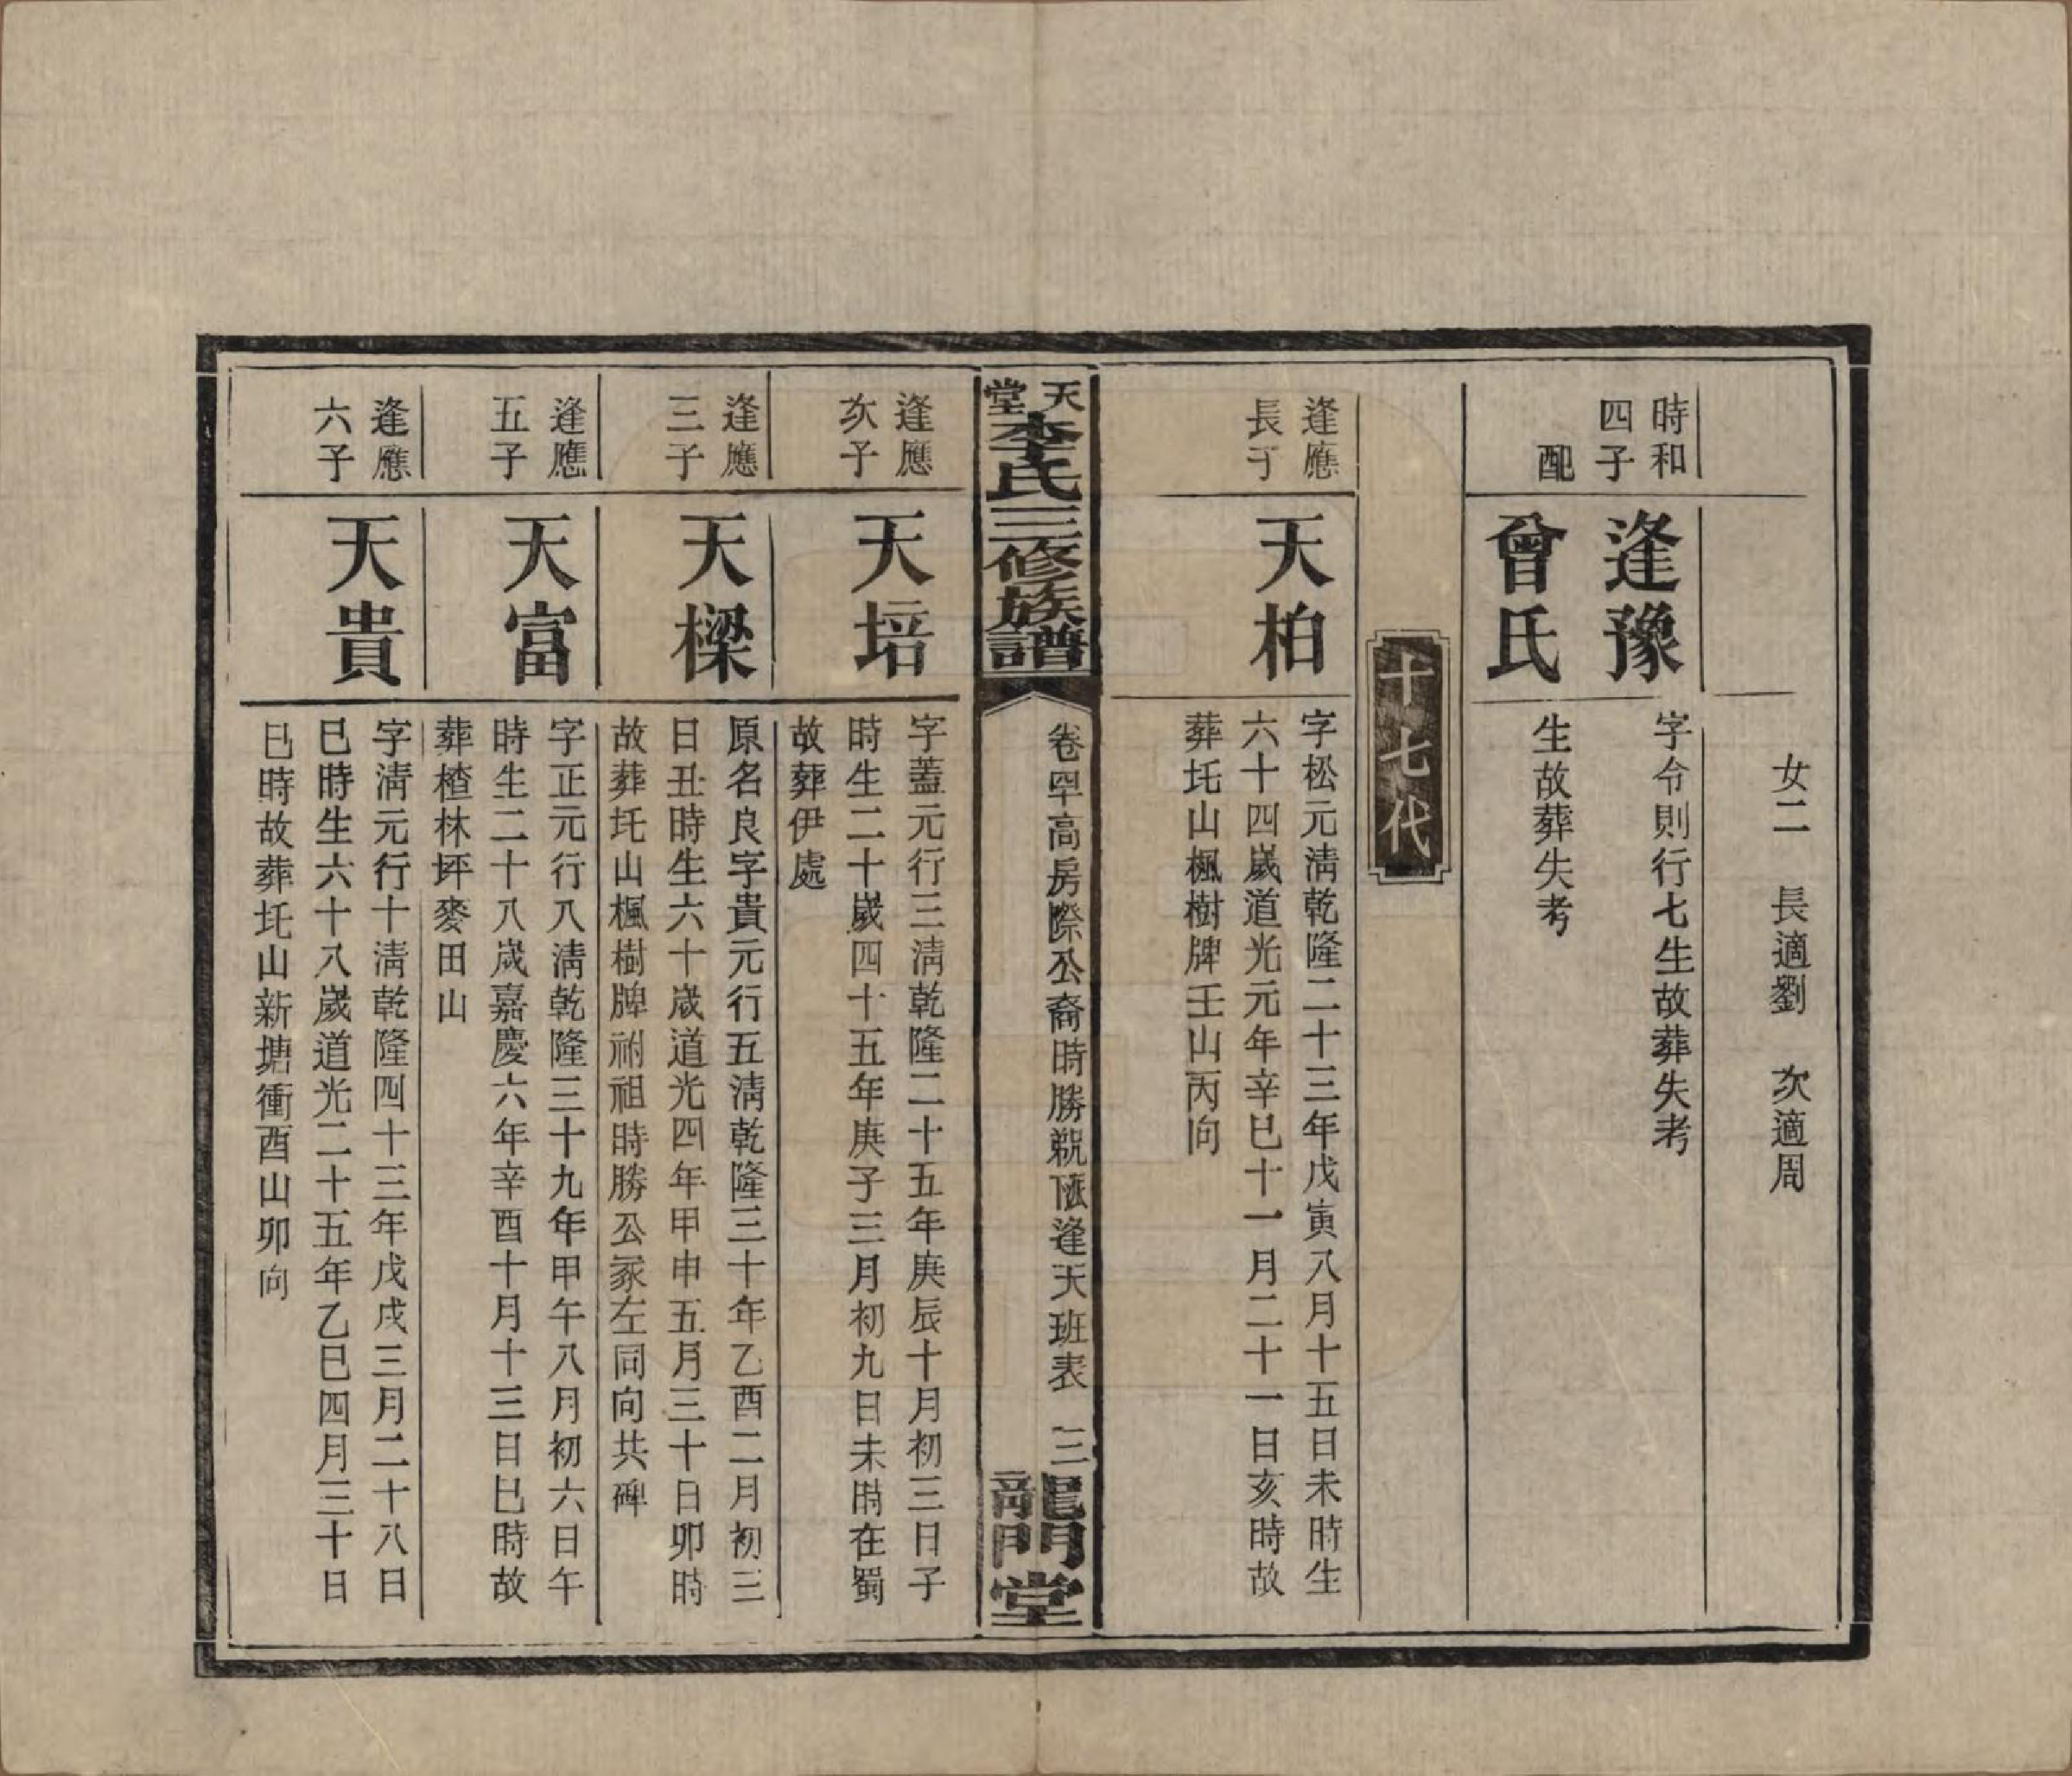 女二　長適劉　次適周
時和
四子
逢豫
字令則行七生故葬失考
配
曾氏
生故葬失考
十七代
逢應
長子
天柏
字松元淸乾隆二十三年戊寅八月十五日未時生
六十四歲道光元年辛巳十一月二十一日亥時故
葬圫山楓樹牌壬山丙向
天堂李氏三修族譜
卷 高房際公裔時勝 逢天班表　三
龍門堂
逢應
次子
天培
字蓋元行三淸乾隆二十五年庚辰十月初三日子
時生二十歲四十五年庚子三月初九日未時在蜀
故葬伊處
逢應
三子
天樑
原名良字貴元行五淸乾隆三十年乙酉二月初三
日丑時生六十歲道光四年甲申五月三十日卯時
故葬圫山楓樹牌祔祖時勝公冢左同向共碑
逢應
五子
天富
字正元行八淸乾隆三十九年甲午八月初六日午
時生二十八歲嘉慶六年辛酉十月十三日巳時故
葬楂林坪麥田山
逢應
六子
天貴
字淸元行十淸乾隆四十三年戊戌三月二十八日
巳時生六十八歲道光二十五年乙巳四月三十日
巳時故葬圫山新塘衝酉山卯向